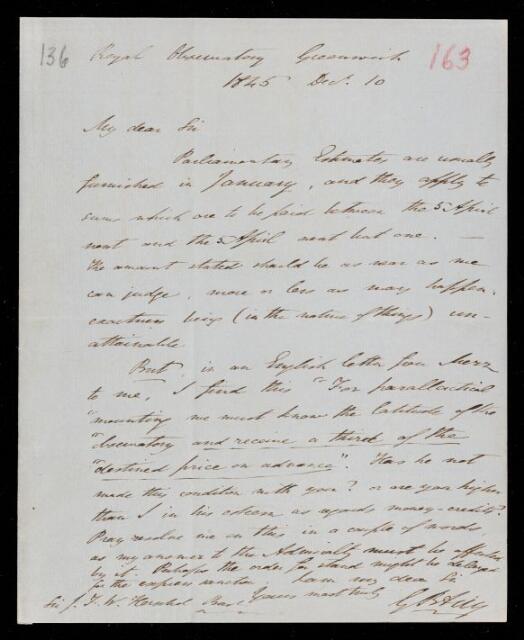 136 Royal Observatory Greenwich 163
1845 Decr. 10
My dear Sir
Parliamentary Estimates are usually
furnished in January, and they apply to
sums which are to be paid between the 5 April
next and the 5 April next but one. —
The amount stated should be as near as we
can judge, more or less as may happen,
exactness being (in the nature of things) un-
attainable.
But, in an English letter from Merz
to me, I find this "For parallactical
"mounting we must know the latitude of the
"observatory and receive a third of the
"destined price in advance". Has he not
made this condition with you? or are you higher
than I in his esteem as regards money-credit?
Pray resolve me on this in a couple of words,
as my answer to the Admiralty must be affected
by it. Perhaps the order for stand might be delayed
for the express sanction. I am my dear Sir
Yours most truly
Sir J. F. W. Herschel Bart G B Airy